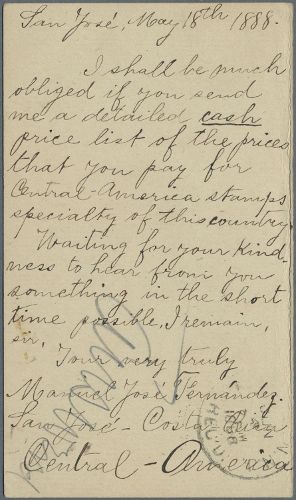 San José, May 18th 1888.
I shall be much
obliged if you send
me a detailed cash
price list of the prices
that you pay for
Central-America stamps
specialty of this country.
Waiting for your kind-
ness to hear from you
something in the short
time possible, I remain,
sir,
Your very truly
Manuel José Fernández.
San José - Costa Rica
Central - America